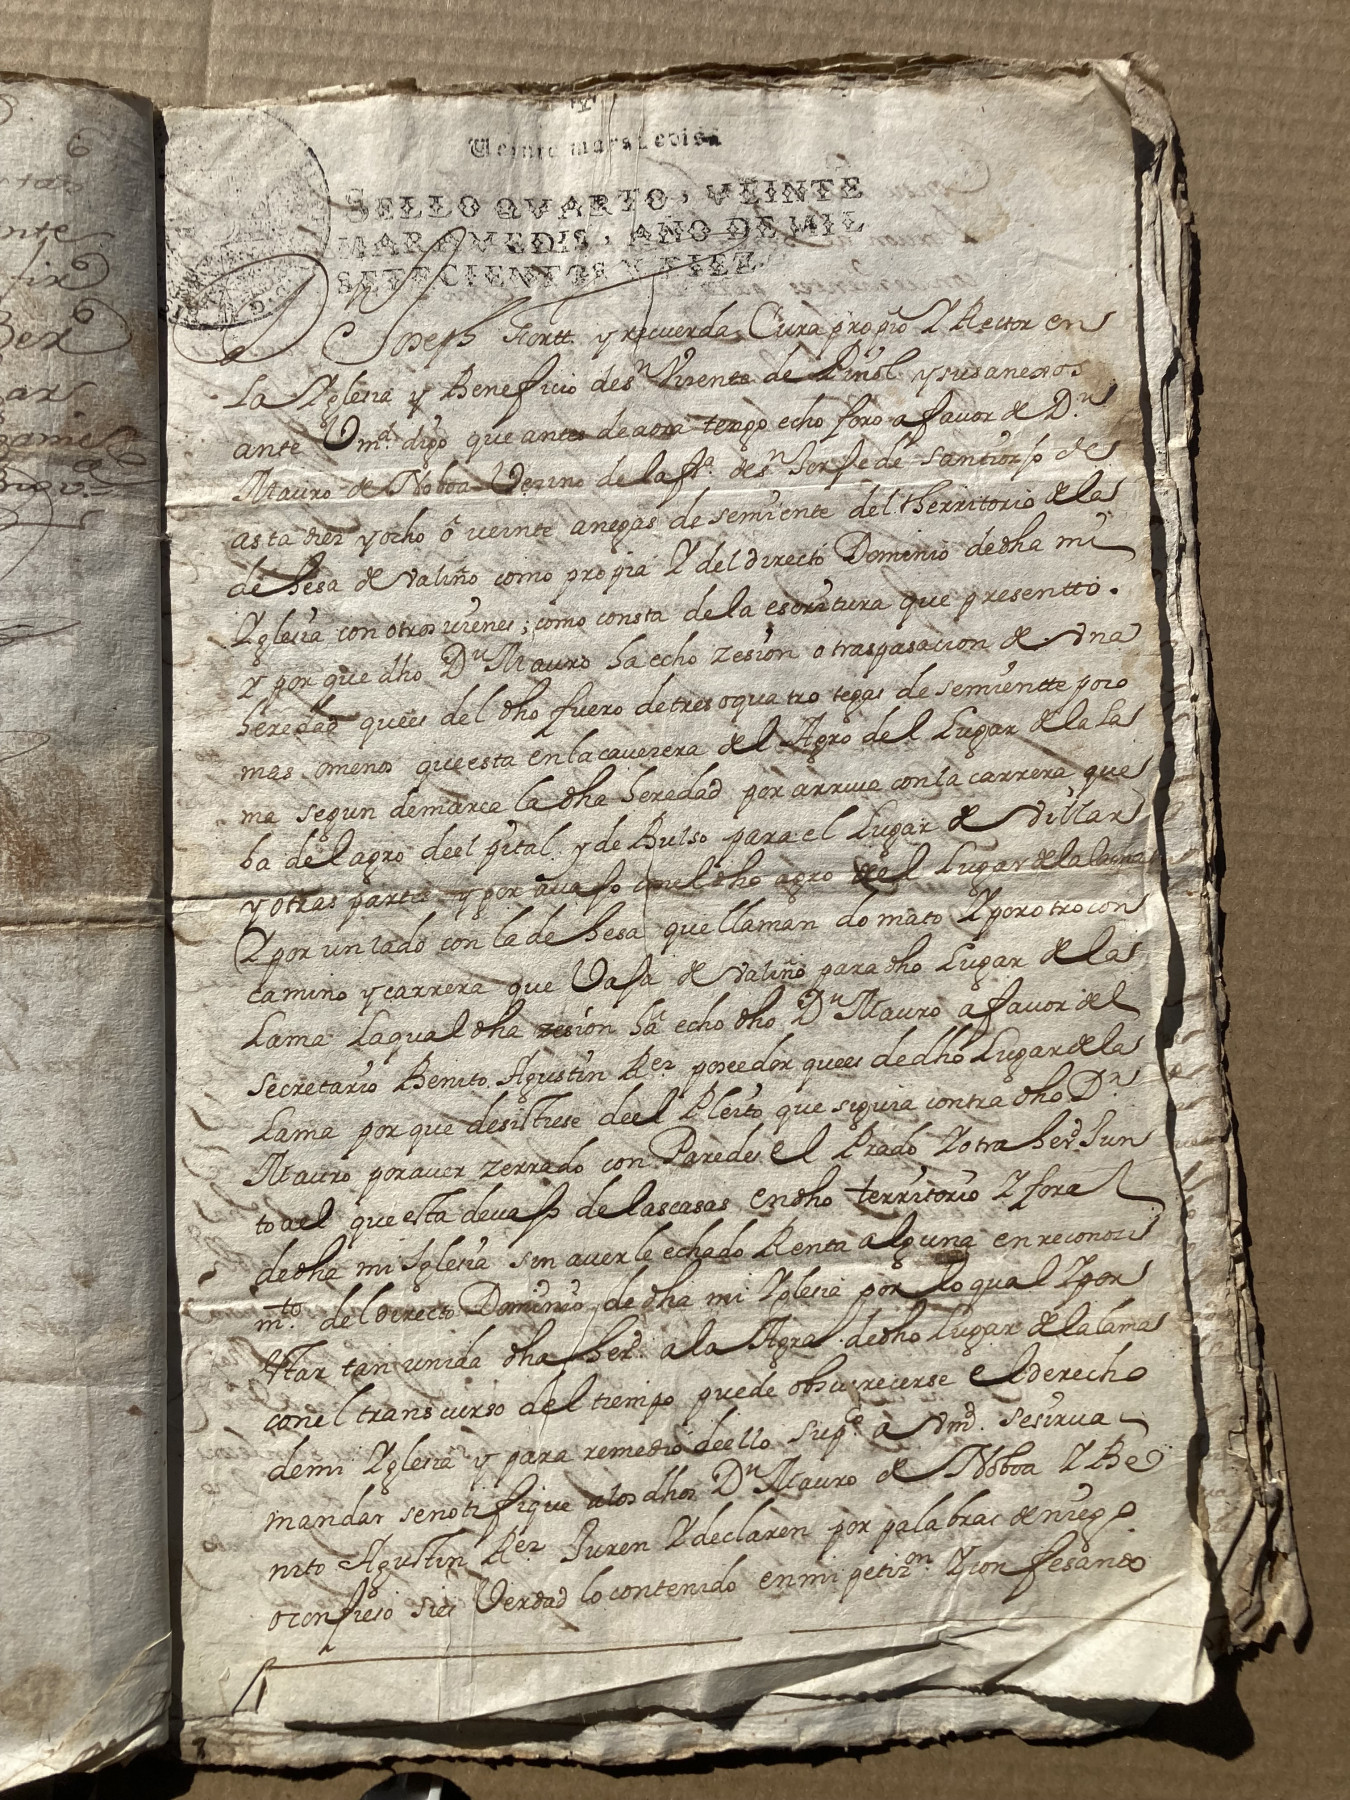 Veinte maravedis
SELLO QVARTO, VEINTE
MARAVEDIS, AÑO DE MIL
SETECIENTOS Y DIEZ.
Joseph y recuerda Cura propio Y Rector en
La Yglesia y Beneficio de sn Vicente de Pinol y sus anexos
ante Vmd. digo que antes de aora tengo echo foro a favor de Dn
Mauro de Noboa Vezino de la fa. de sn de
asta diez y ocho o veinte anegas de semiente del therritorio de la
dehesa de Valiño como propia Y del directo Dominio de dha mi
Yglesia con otros vienes; como consta de la escritura que presentto.
Y por que dho Dn Mauro ha echo zesion o traspasacion de Vna
heredad que es del dho fuero de tres o quatro tegas de semientte poco
mas omenos que esta en la cavezera del Agro del Lugar de la La
ma segun demarca la dha heredad por arriva con la carrera que
ba del agro de el pital y de Bulso para el Lugar de Villar
y otras partes y por avajo con el dho agro del Lugar de la lama
Y por un lado con la dehesa que llaman do mato Y por otro con
camino y carrera que Vaja de Valiño para dho Lugar de la
Lama La qual dha zesion ha echo dho Dn Mauro a favor del
secretario Benito Agustin Rez poseedor que es de dho Lugar de la
Lama por que desistiese de el Pleito que siguia contra dho Dn
Mauro por aver zerrado con Paredes el Prado Y otra herd Jun
to a el que esta devajo de las casas en dho territorio Y foral
de dha mi Iglesia sin averle echado Renta alguna en reconozi
mto. del derecto Dominio de dha mi Yglesia por lo qual Y por
estar tan unida dha herd a la Agra de dho Lugar de la lama
con el transcurso del tiempo puede obscurecerse el derecho
de mi Yglesia y para remedio de ello supco a Vmd. se sirva
mandar se notifique a los dhos Dn Mauro de Noboa Y Be
nito Agustin Rez Juren Y declaren por palabras de niego
o confieso si es Verdad lo contenido en mi petizon. Y confesando